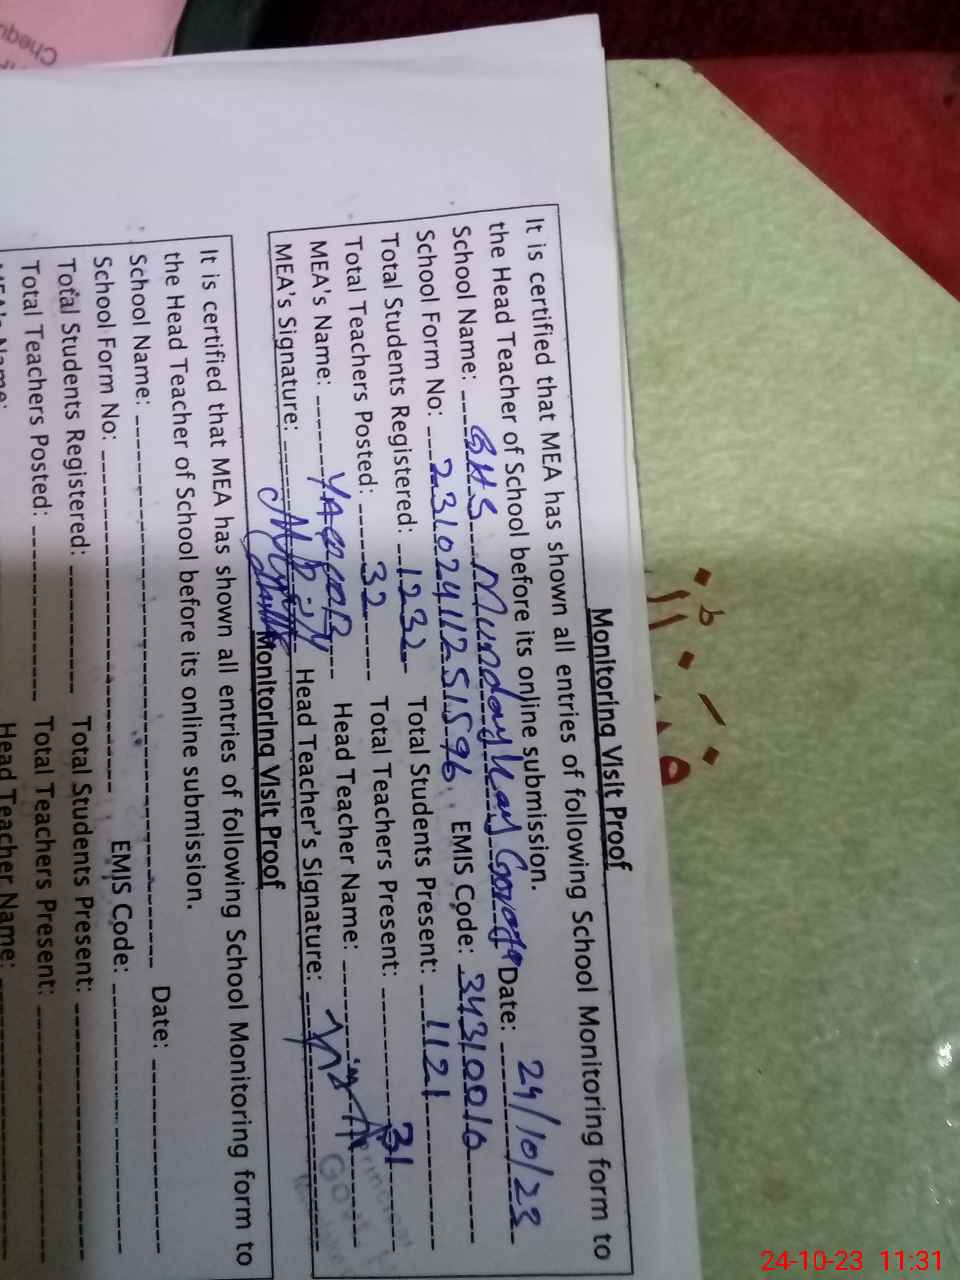 Chequ
Monitoring Visit Proof
It is certified that MEA has shown all entries of following School Monitoring form to
the Head Teacher of School before its online submission.
School Name: GHS Date: 24/10/23
School Form No: 23102411251596 EMIS Code: 34310010
Total Students Registered: 1232 Total Students Present: 1121
Total Teachers Posted: 32 Total Teachers Present: 31
MEA's Name: Head Teacher Name:
MEA's Signature: Head Teacher's Signature:
Principal
Govt
Monitoring Visit Proof
It is certified that MEA has shown all entries of following School Monitoring form to
the Head Teacher of School before its online submission.
School Name: Date:
School Form No: EMIS Code:
Total Students Registered: Total Students Present:
Total Teachers Posted: Total Teachers Present:
MEA's Name: Head Teacher Name:
24-10-23 11:31